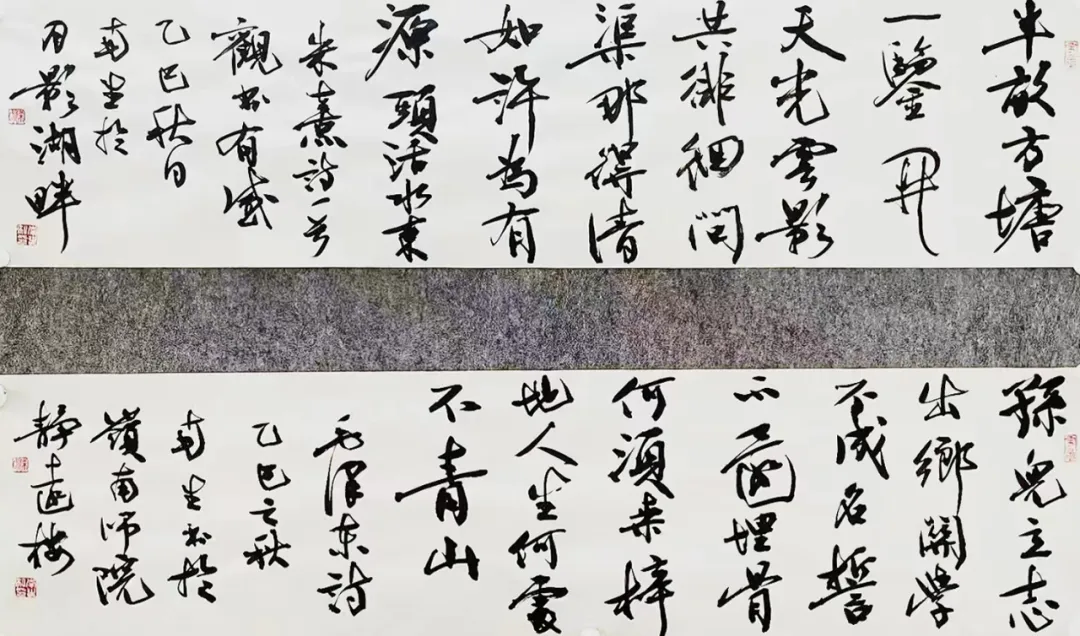 半畝方塘
一鑒開
天光雲影
共徘徊問
渠那得清
如許為有
源頭活水來
朱熹詩一首
觀書有感
乙巳秋日
南生於
月影湖畔
孩兒立志
出鄉關學
不成名誓
不還埋骨
何須桑梓
地人生何處
不青山
毛澤東詩
乙巳之秋
南生書於
嶺南師院
靜遠樓